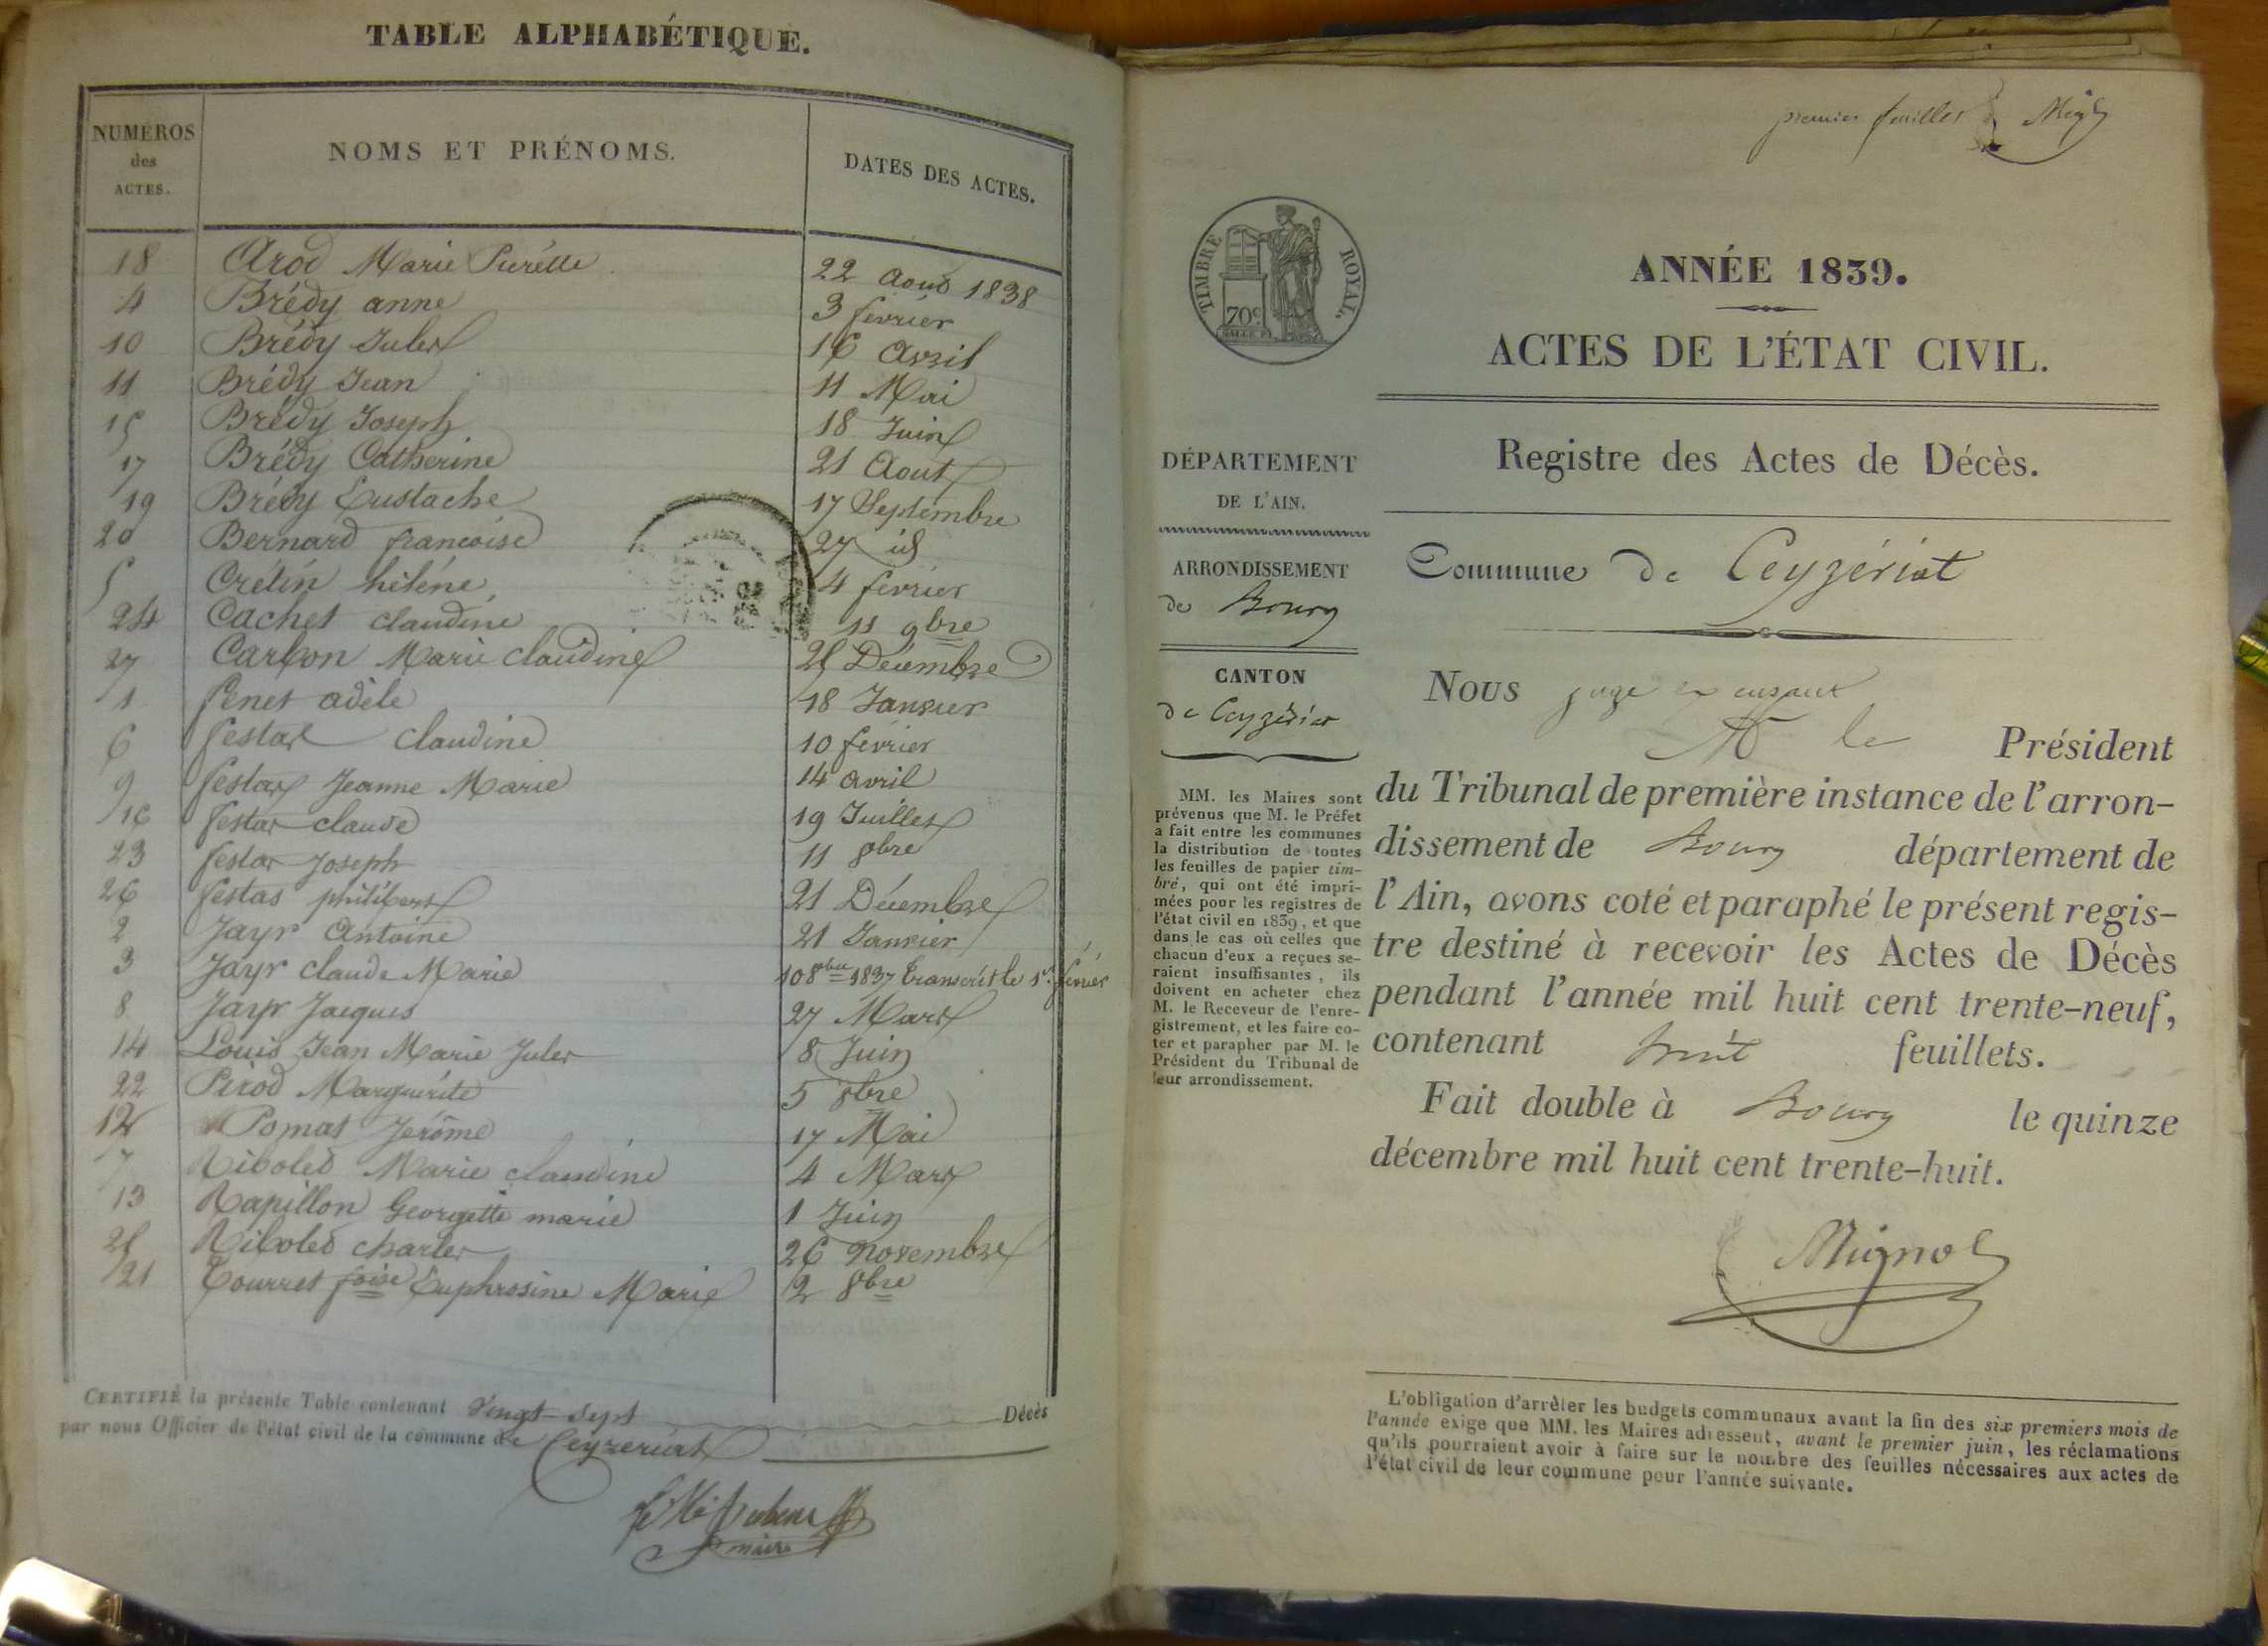 TABLE ALPHABÉTIQUE.
NUMÉROS des ACTES.
NOMS ET PRÉNOMS.
DATES DES ACTES.
18 Arod Marie Pierrette 22 Aout 1838
4 Brédy anne 3 fevrier
10 Brédy Jules 16 Avril
11 Brédy Jean 11 Mai
15 Brédy Joseph 18 Juin
17 Brédy Catherine 21 Aout
19 Brédy Eustache 17 Septembre
20 Bernard francoise 27 id
5 Crétin héléne 4 fevrier
24 Cachet claudine 11 9bre
27 Carbon Marie claudine 25 Décembre
1 fenet adèle 18 Janvier
6 festas claudine 10 fevrier
9 festas Jeanne Marie 14 avril
16 festas claude 19 Juillet
23 festas Joseph 11 8bre
26 festas philibert 21 Décembre
2 Jayr Antoine 21 Janvier
3 Jayr claude Marie 10 8bre 1837 transcrit le 1er fevrier
8 Jayr Jacques 27 Mars
14 Louis Jean Marie Jules 8 Juin
22 Pirod Marguérite 5 8bre
12 Pomat Jérôme 17 Mai
7 Riboled Marie claudine 4 Mars
13 Rapillon Georgette marie 1 Juin
25 Riboled charles 26 novembre
21 Tourret foise Euphrosine Marie 2 8bre
CERTIFIÉ la présente Table contenant Vingt-Sept Décès
par nous Officier de l'état civil de la commune de Ceyzeriat
maire
premier feuillet
TIMBRE ROYAL.
70c
ANNÉE 1839.
ACTES DE L'ÉTAT CIVIL.
Registre des Actes de Décès.
Commune de Ceyzériat
DÉPARTEMENT
DE L'AIN.
ARRONDISSEMENT
de Bourg
CANTON
de Ceyzériat
MM. les Maires sont
prévenus que M. le Préfet
a fait entre les communes
la distribution de toutes
les feuilles de papier tim-
bré, qui ont été impri-
mées pour les registres de
l'état civil en 1839, et que
dans le cas où celles que
chacun d'eux a reçues se-
raient insuffisantes, ils
doivent en acheter chez
M. le Receveur de l'enre-
gistrement, et les faire co-
ter et parapher par M. le
Président du Tribunal de
leur arrondissement.
Nous juge en
le Président
du Tribunal de première instance de l'arron-
dissement de Bourg département de
l'Ain, avons coté et paraphé le présent regis-
tre destiné à recevoir les Actes de Décès
pendant l'année mil huit cent trente-neuf,
contenant huit feuillets.
Fait double à Bourg le quinze
décembre mil huit cent trente-huit.
Mignot
L'obligation d'arrêter les budgets communaux avant la fin des six premiers mois de
l'année exige que MM. les Maires adressent, avant le premier juin, les réclamations
qu'ils pourraient avoir à faire sur le nombre des feuilles nécessaires aux actes de
l'état civil de leur commune pour l'année suivante.